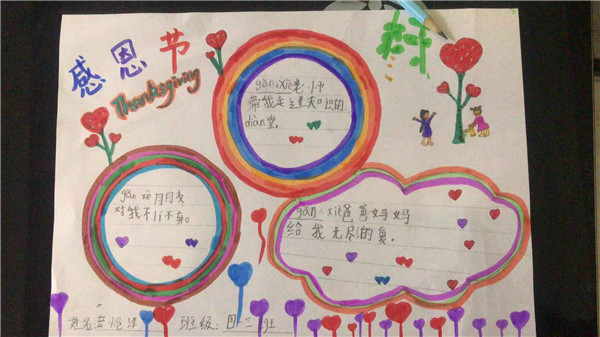 感恩节
Thanksgiving
gǎn xiè老师
带我走进知识的
diàn堂。
gǎn xiè朋友
对我不lí不弃。
gǎn xiè爸爸妈妈
给 我 无尽的爱。
姓名
班级：
班